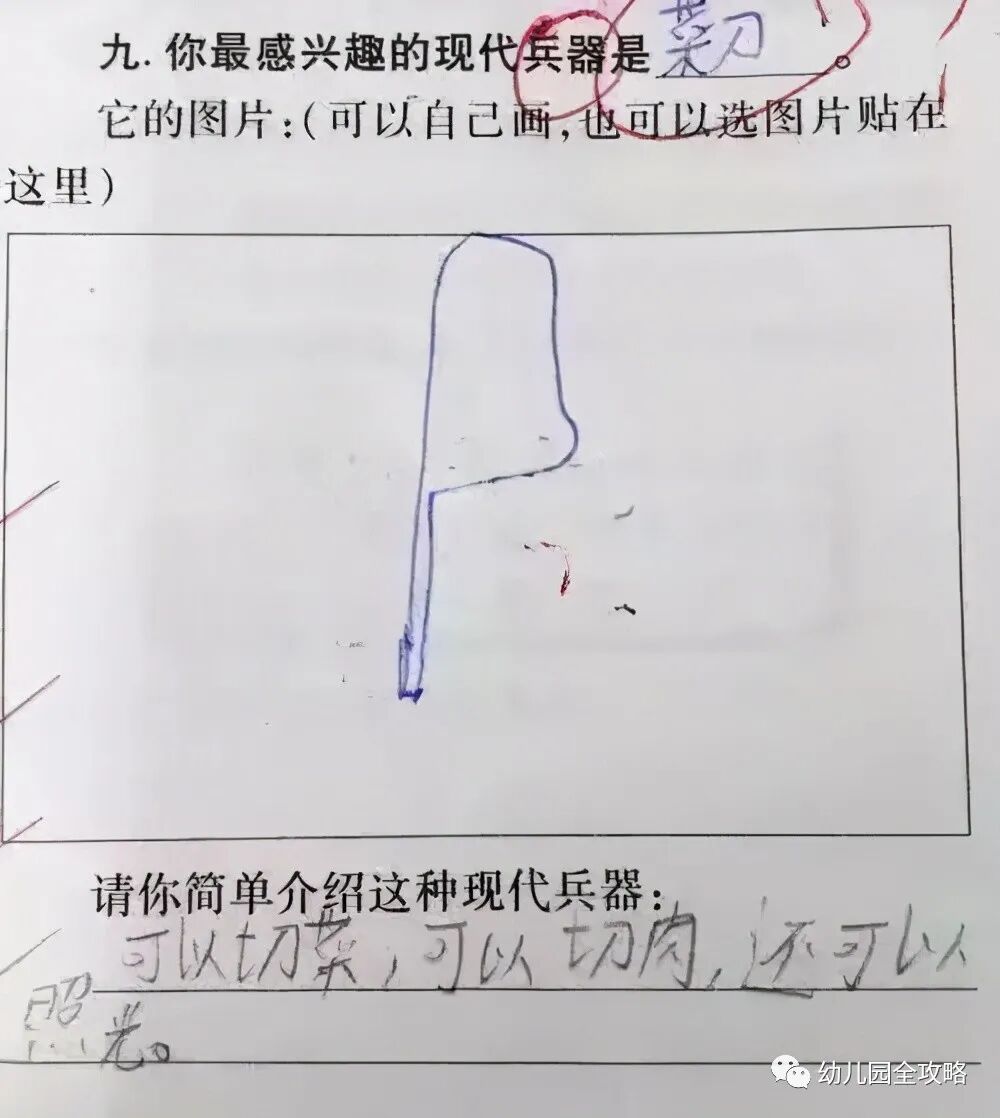 九.你最感兴趣的现代兵器是菜刀。
它的图片:(可以自己画,也可以选图片贴在
这里)
请你简单介绍这种现代兵器:
可以切菜,可以切肉,还可以
照光。
幼儿园全攻略